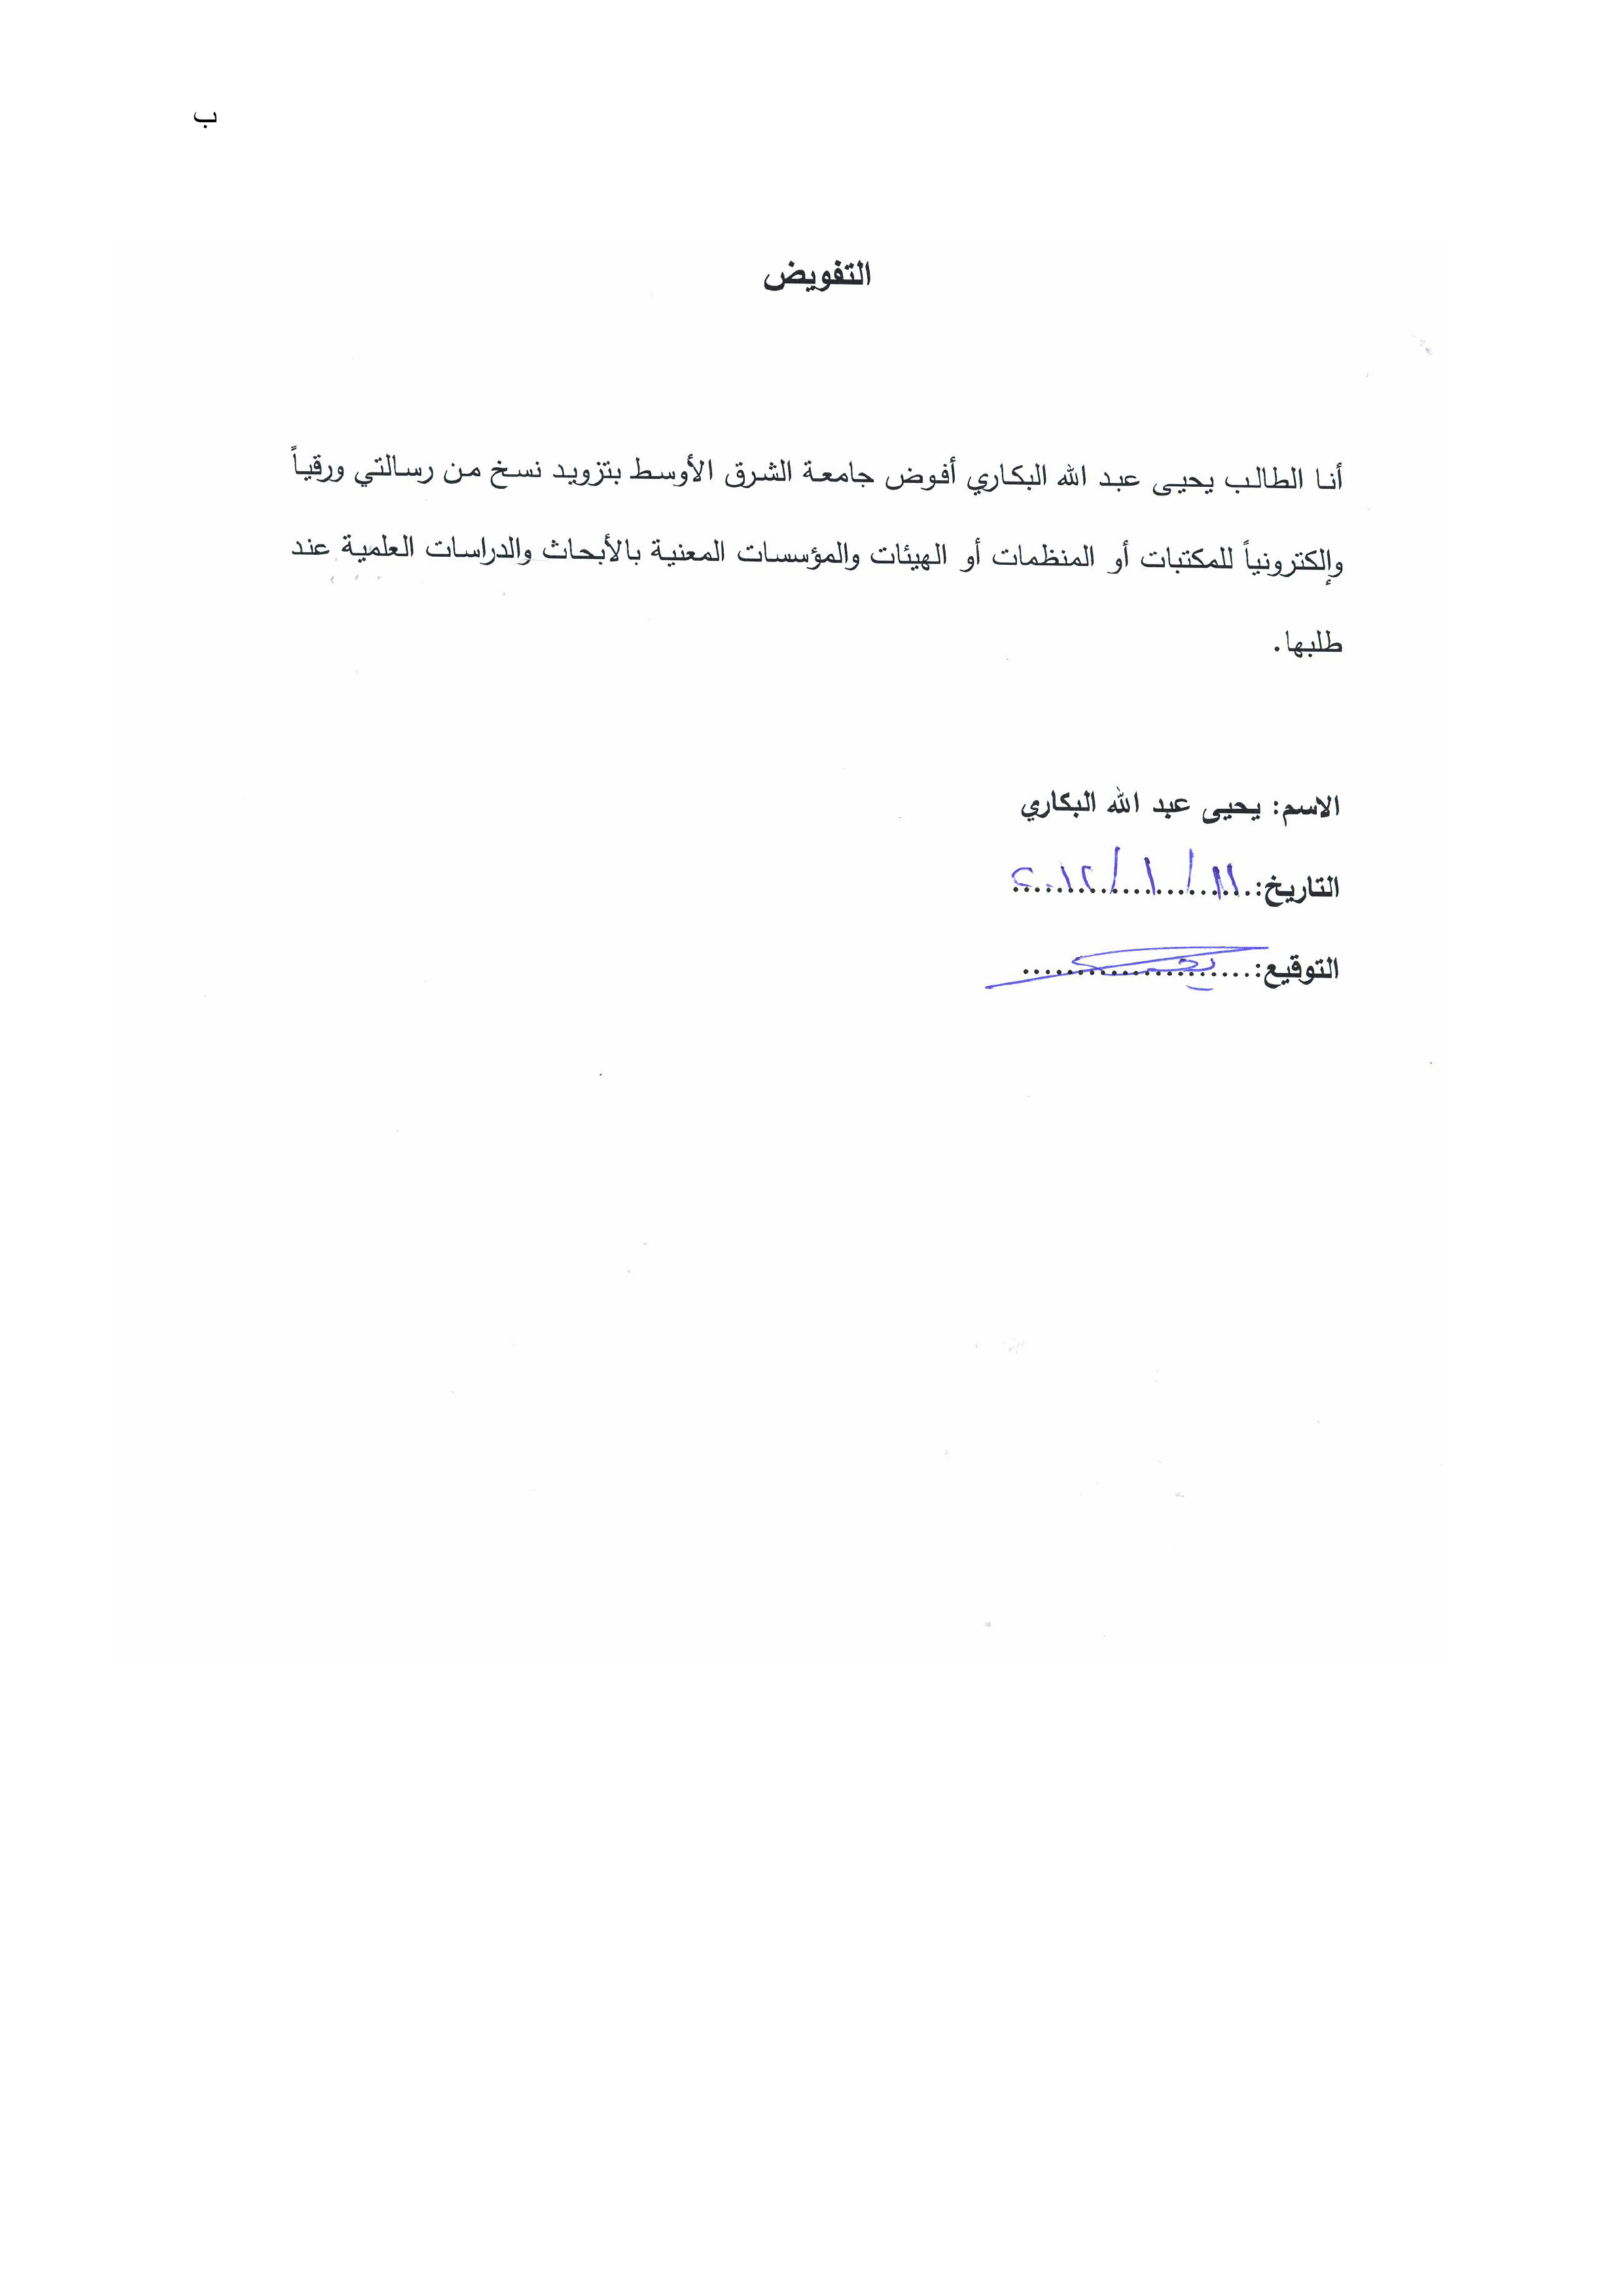 ب
التفويض
أنا الطالب يحيى عبد الله البكاري أفوض جامعة الشرق الأوسط بتزويد نسخ من رسالتي ورقياً
وإلكترونياً للمكتبات أو المنظمات أو الهيئات والمؤسسات المعنية بالأبحاث والدراسات العلمية عند
طلبها.
الاسم: يحيى عبد الله البكاري
التاريخ: ١١ / ١ / ٢٠١٢
التوقيع: